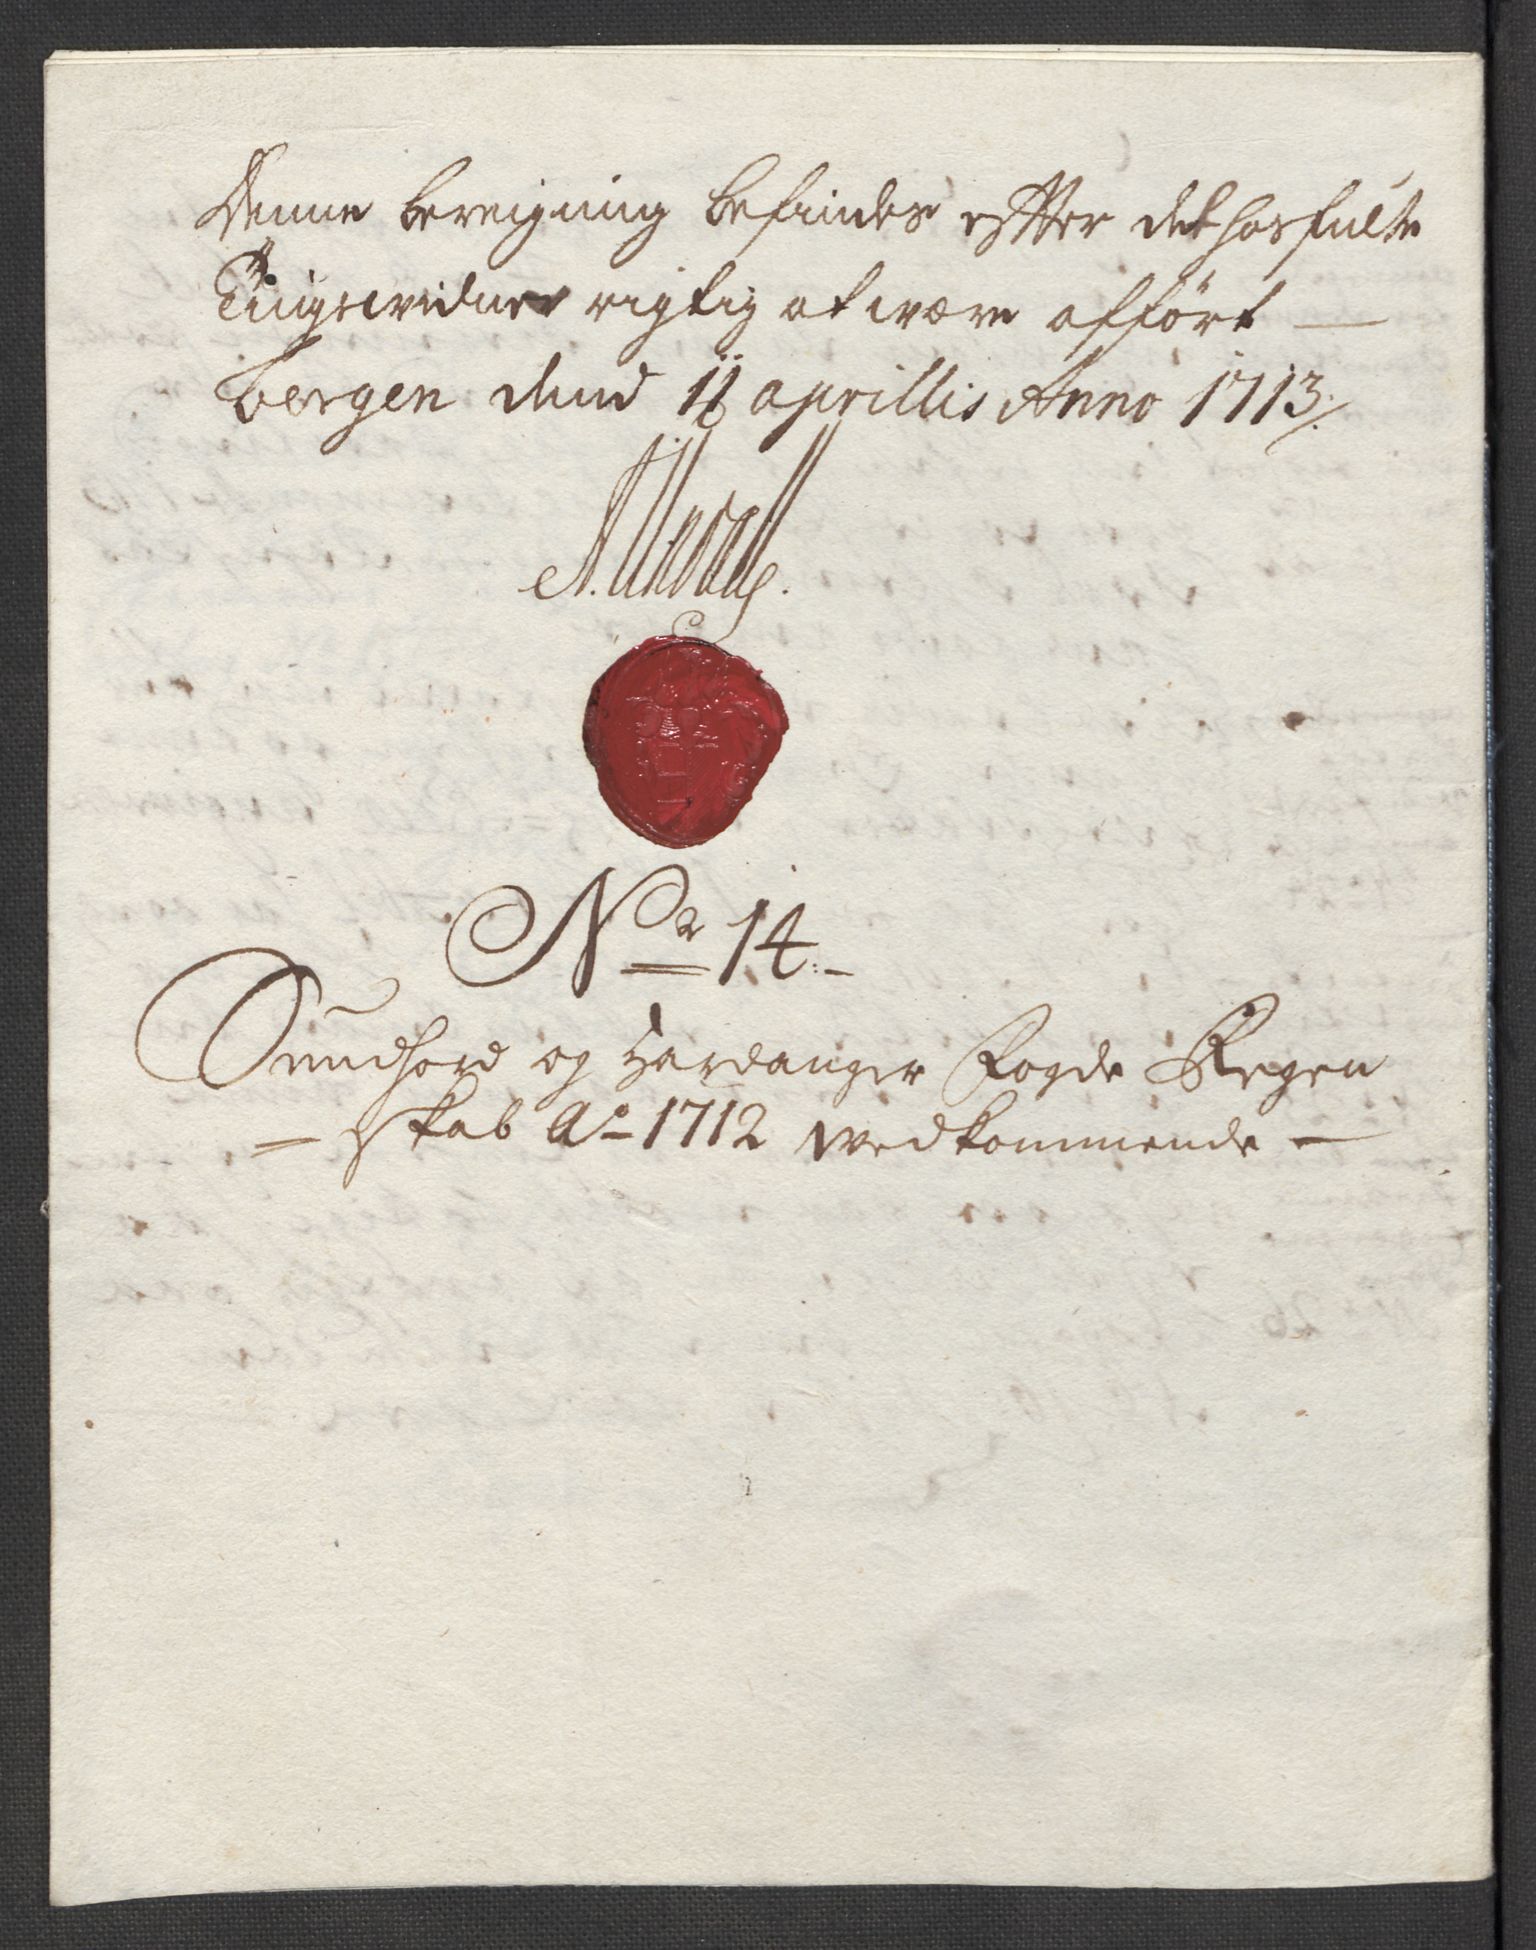 Denne bereigning befindes effter dethosfulte
Tingsvidner rigtig at være afført —
Bergen dend 11 aprillis Anno 1713.
No 14.
Sundhord og Hardanger Fogde Regen
= skab Ao 1712 vedkommende —